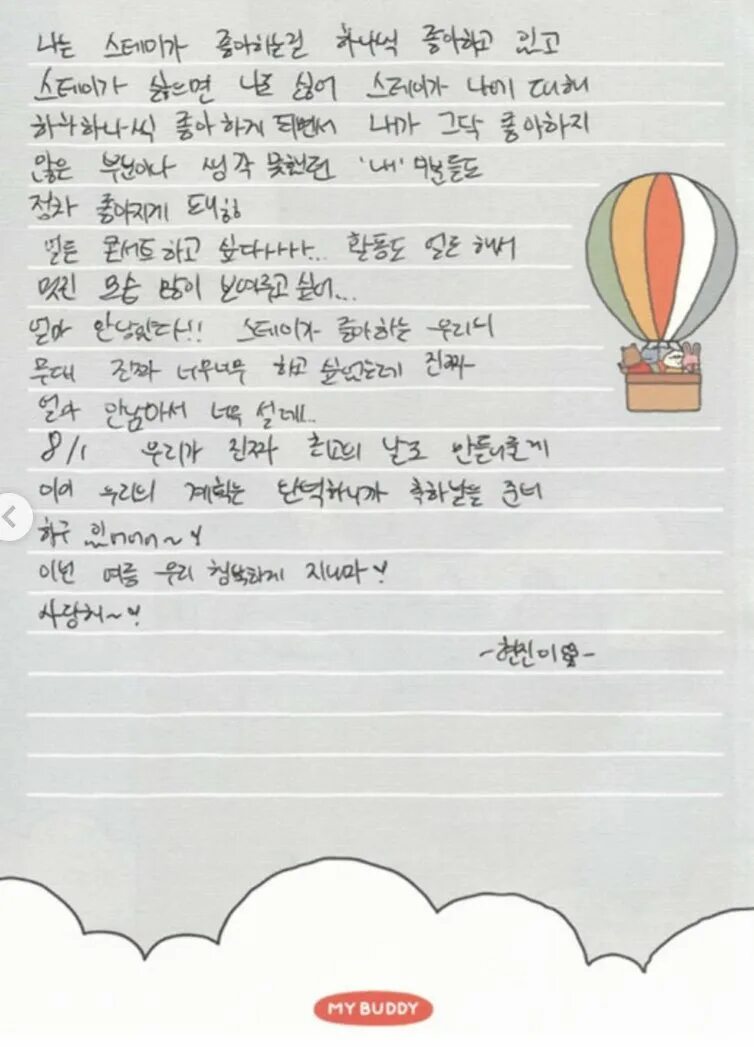 나는 스테이가 좋아하는걸 하나씩 좋아하고 있고
스테이가 싫으면 나도 싫어 스테이가 나에 대해
하나하나씩 좋아하게 되면서 내가 그닥 좋아하지
않은 부분이나 생각 못했던 '내' 부분들도
점차 좋아지게 돼
얼른 콘서트 하고 싶다아아아... 활동도 얼른 해서
멋진 모습 많이 보여주고 싶어...
얼마 안남았다!! 스테이가 좋아하는 우리의
무대 진짜 너무너무 하고 싶었는데 진짜
얼마 안남아서 너무 설데..
8/1 우리가 진짜 최고의 날로 만들어줄게
이미 우리의 계획는 완벽하니까 축하날을 준비
하구 있어어어~♥
이번 여름 우리 행복하게 지내자♥
사랑해~♥
-현진이-
MY BUDDY